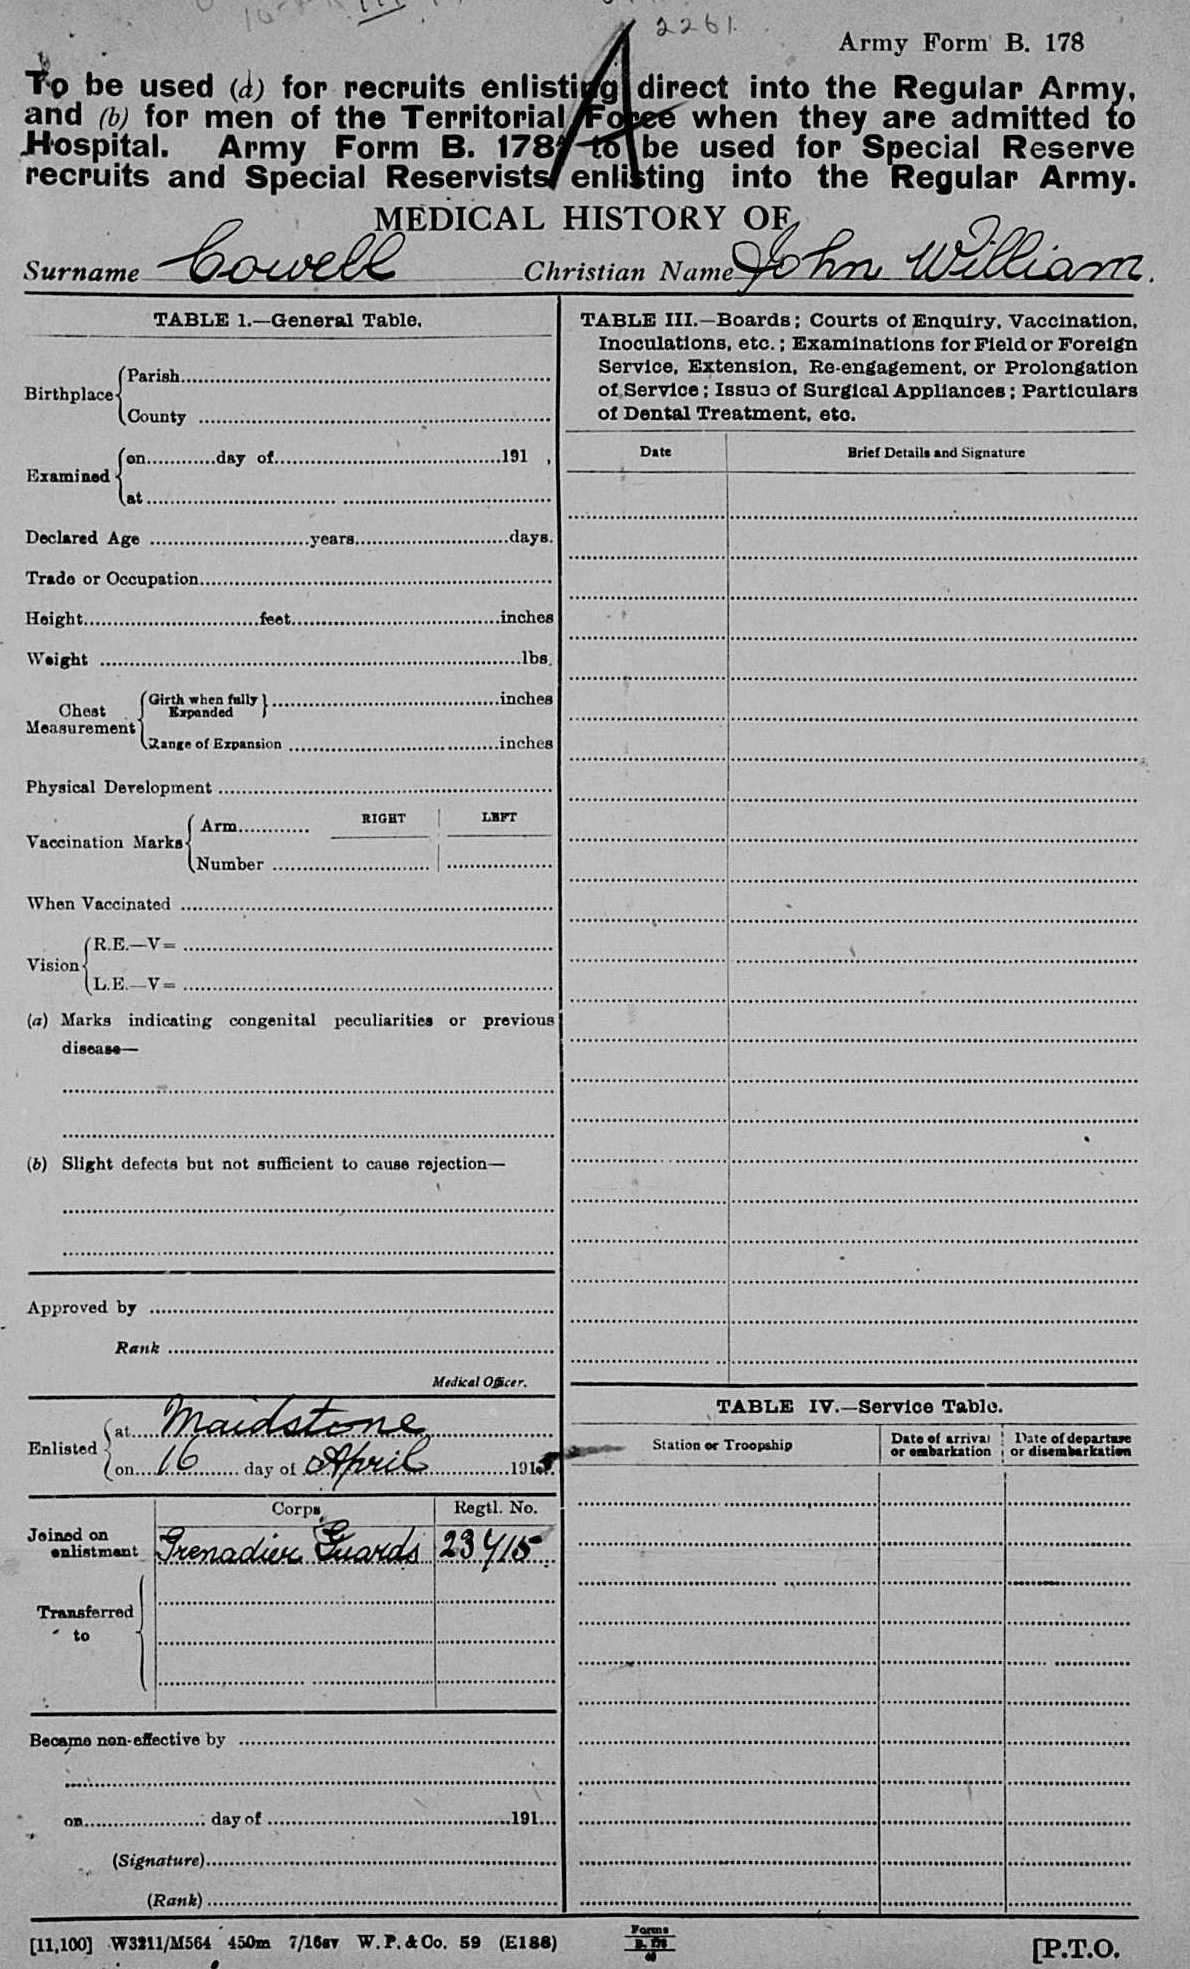 2261.
Army Form B. 178
To be used (a) for recruits enlisting direct into the Regular Army,
and (b) for men of the Territorial Force when they are admitted to
Hospital. Army Form B. 178A to be used for Special Reserve
recruits and Special Reservists enlisting into the Regular Army.
MEDICAL HISTORY OF
Surname Cowell Christian Name John William.
TABLE I.—General Table.
Birthplace
Parish
County
Examined
on day of 191 ,
at
Declared Age years days.
Trade or Occupation
Height feet inches
Weight lbs.
Chest Measurement
Girth when fully Expanded inches
Range of Expansion inches
Physical Development
RIGHT LEFT
Vaccination Marks
Arm
Number
When Vaccinated
Vision
R.E.—V=
L.E.—V=
(a) Marks indicating congenital peculiarities or previous
disease—
(b) Slight defects but not sufficient to cause rejection—
Approved by
Rank
Medical Officer.
Enlisted
at Maidstone
on 16 day of April 1915.
Corps Regtl. No.
Joined on
enlistment Grenadier Guards 23415
Transferred
to
Became non-effective by
on day of 191
(Signature)
(Rank)
TABLE III.—Boards; Courts of Enquiry, Vaccination,
Inoculations, etc.; Examinations for Field or Foreign
Service, Extension, Re-engagement, or Prolongation
of Service; Issue of Surgical Appliances; Particulars
of Dental Treatment, etc.
Date Brief Details and Signature
TABLE IV.—Service Table.
Station or Troopship
Date of arrival
or embarkation
Date of departure
or disembarkation
[11,100] W3211/M564 450m 7/16sv W. P. & Co. 59 (E188)
Forms
B. 178
[P.T.O.